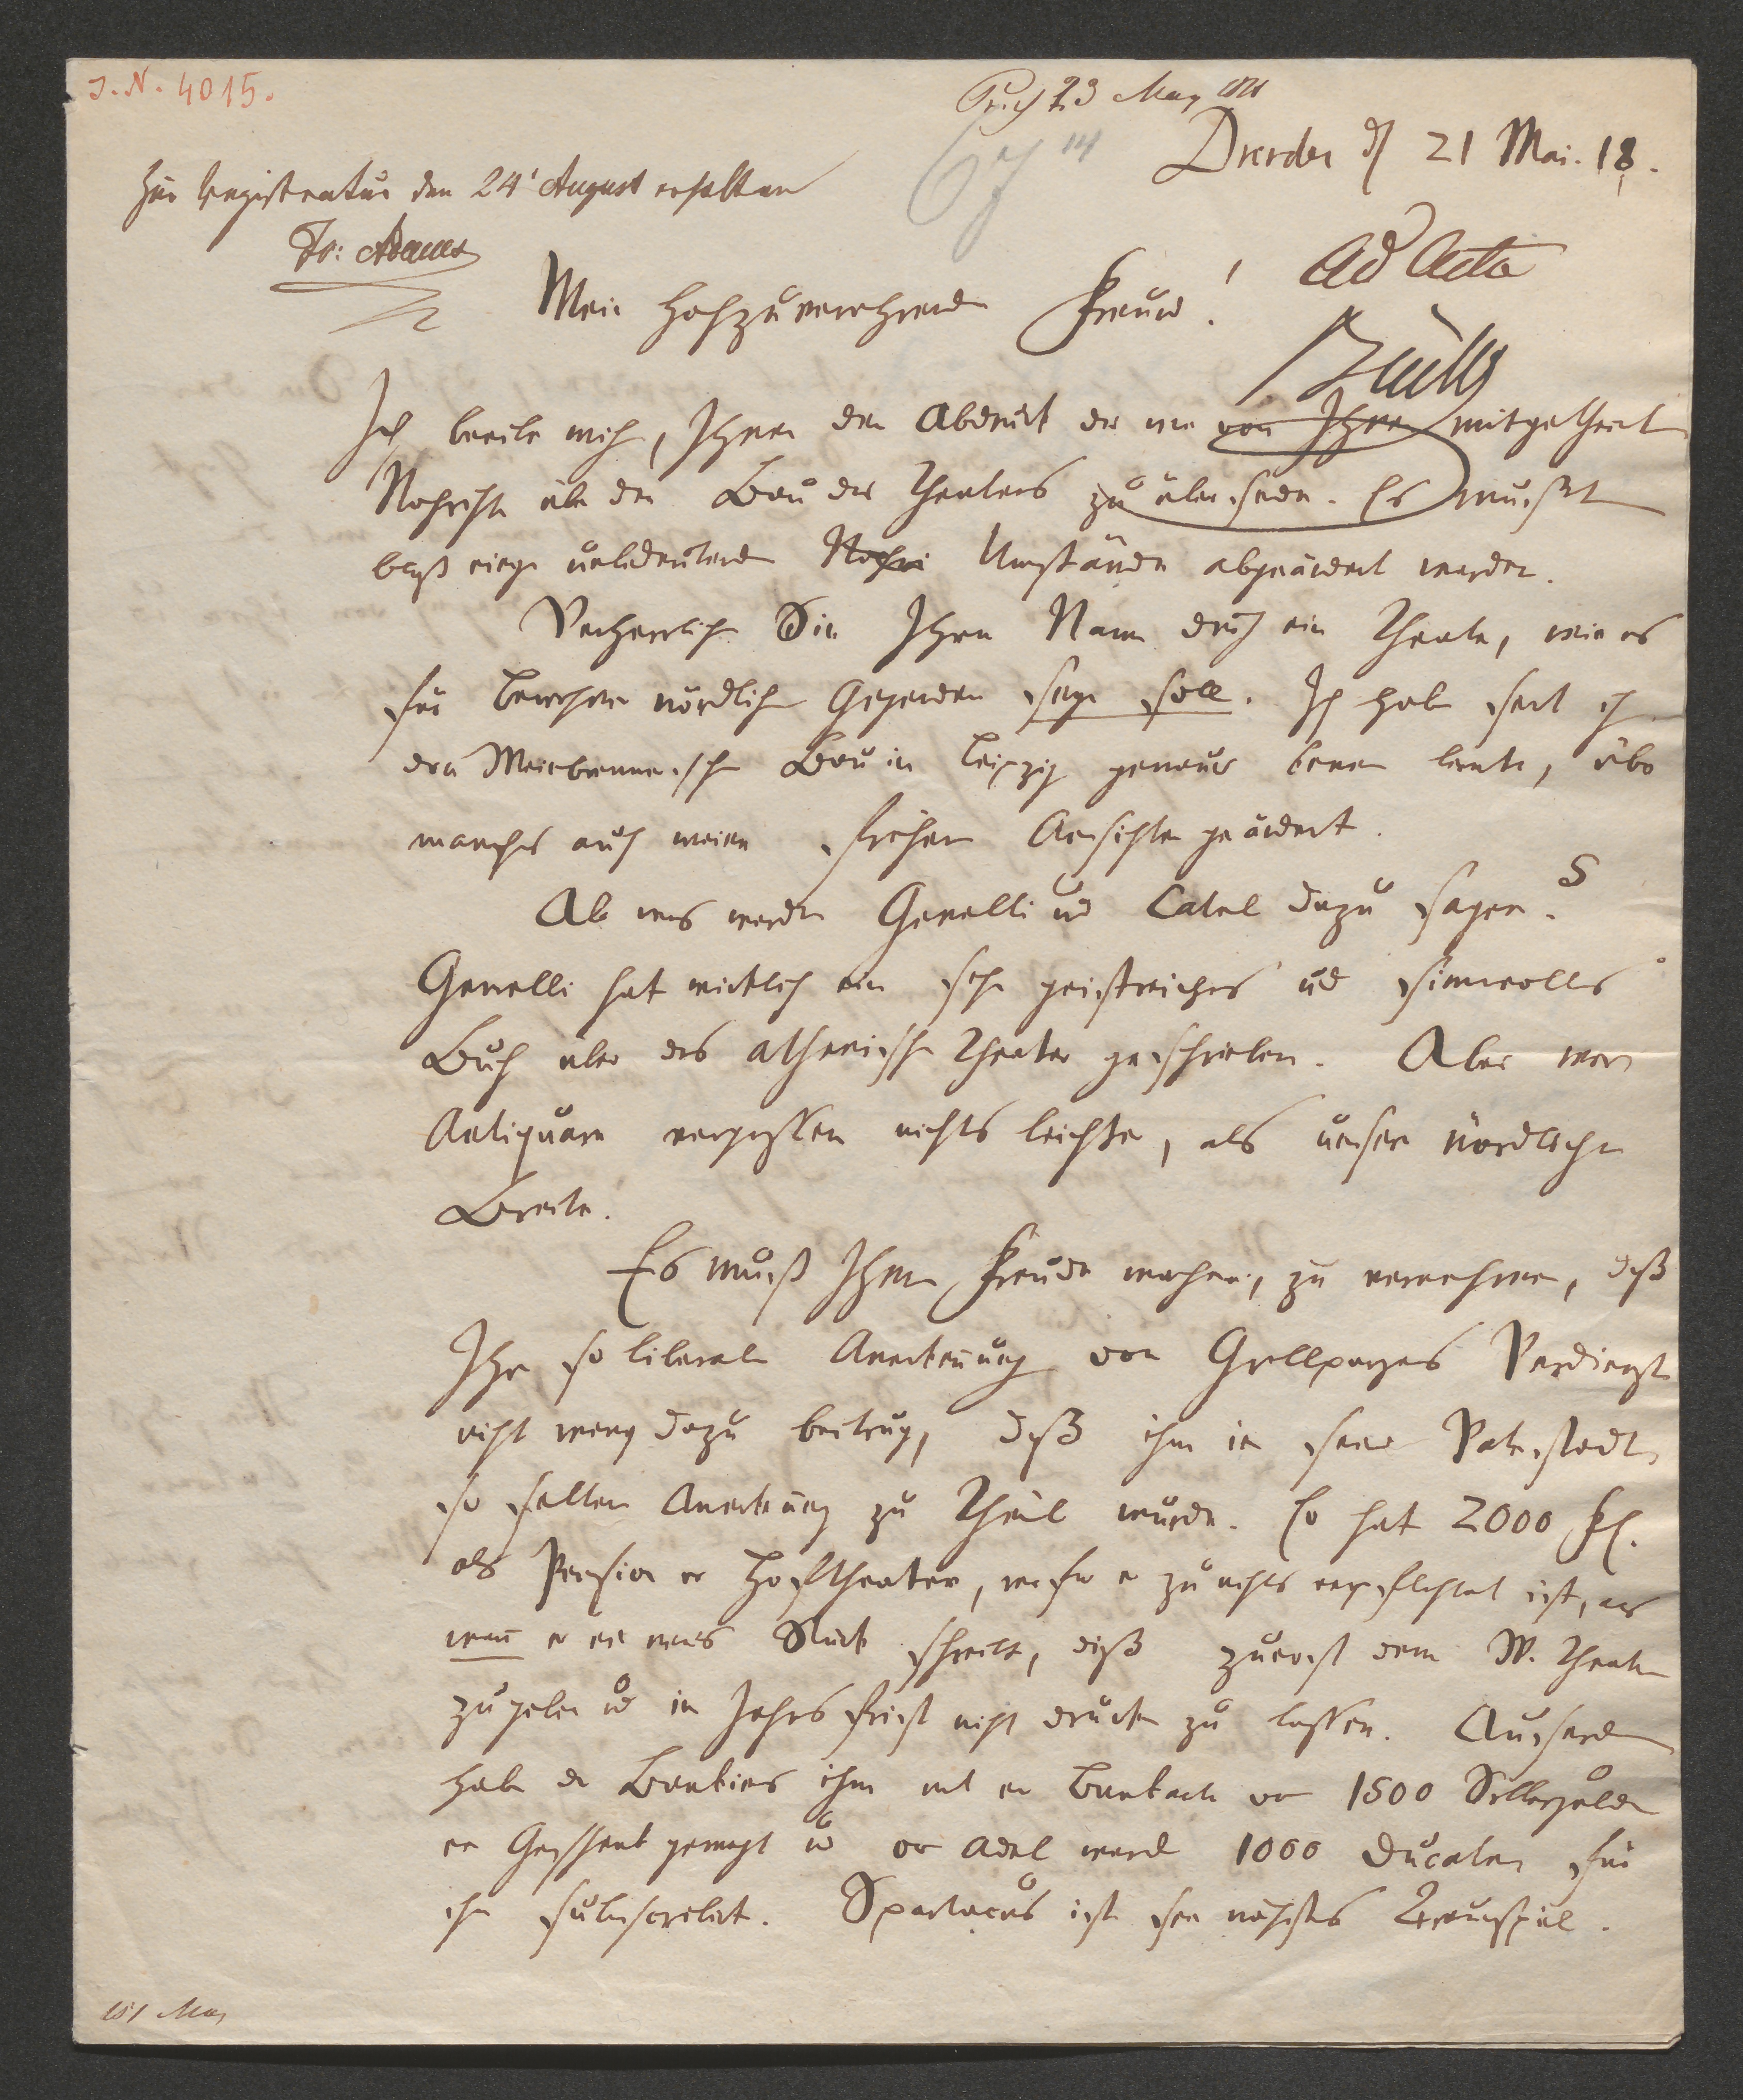 J. N. 4015.
23 May
Dresden d 21 Mai. 18.
Zur Registratur den 24' August erhalten
Fr: Adami
Ad Acta
Brühl
Mein hochzuverehrender Freund!
Ich beeile mich, Ihnen den Abdruck der mir von Ihnen mitgetheilt
Nachricht über den Bau des Theaters zu übersenden. Es mußt
bloß einige unbedeutende Umstände abgeändert werden.
Verherrlichen Sie Ihren Namen durch ein Theater, wie es
für Bewohner nördlicher Gegenden seyn soll. Ich habe seit ich
den Weinbrennerschen Bau in Leipzig genauer kennen lernte, über
manches auch meine frühern Ansichten geändert.
Aber was werden Genelli und Catel dazu sagen?
Genelli hat wirklich ein sehr geistreiches und sinnvolles
Buch über das athenische Theater geschrieben. Aber wir
Antiquare vergessen nichts leichter, als unsere nördliche
Breite.
Es muß Ihnen Freude machen, zu vernehmen, daß
Ihre so liberale Anerkennung von Grillparzers Verdienst
nicht wenig dazu beitrug, daß ihm in seiner Vaterstadt
so seltene Anerkennung zu Theil wurde. Er hat 2000 Fl.
als Pension vom Hoftheater, wofür er zu nichts verpflichtet ist, als
wenn er ein neues Stück schreibt, diß zuerst dem W. Theater
zu geben und in Jahresfrist nicht drucken zu lassen. Ausserdem
haben die Bankiers ihm mit einer Bankactie von 1500 Silbergulden
ein Geschenk gemacht und vom Adel ward 1000 Ducaten für
ihn subscribirt. Spartacus ist sein nächstes Trauerspiel.